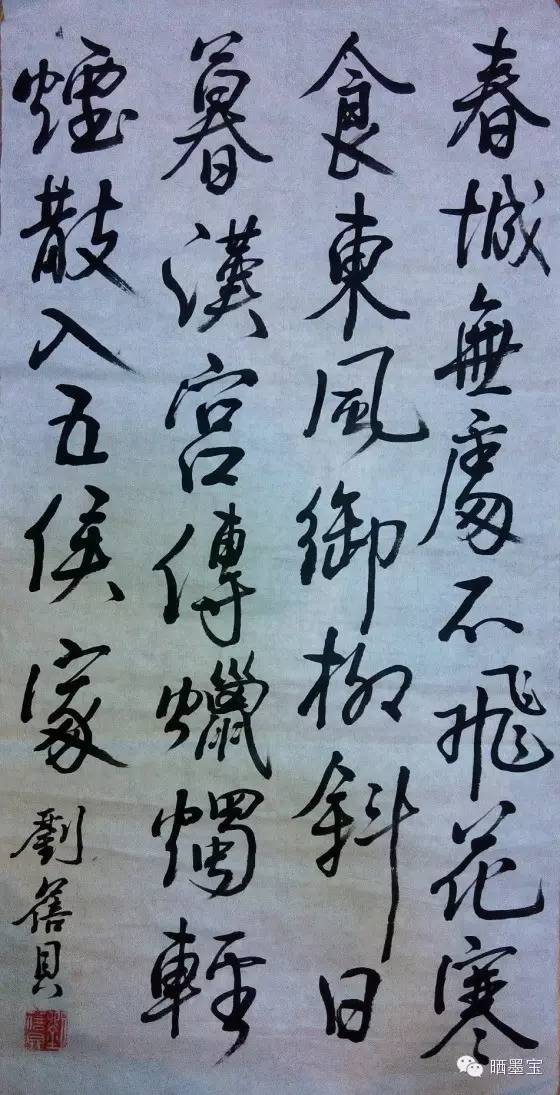 春城無處不飛花寒
食東風御柳斜日
暮漢宮傳蠟燭輕
煙散入五侯家
劉舊貝
晒墨宝